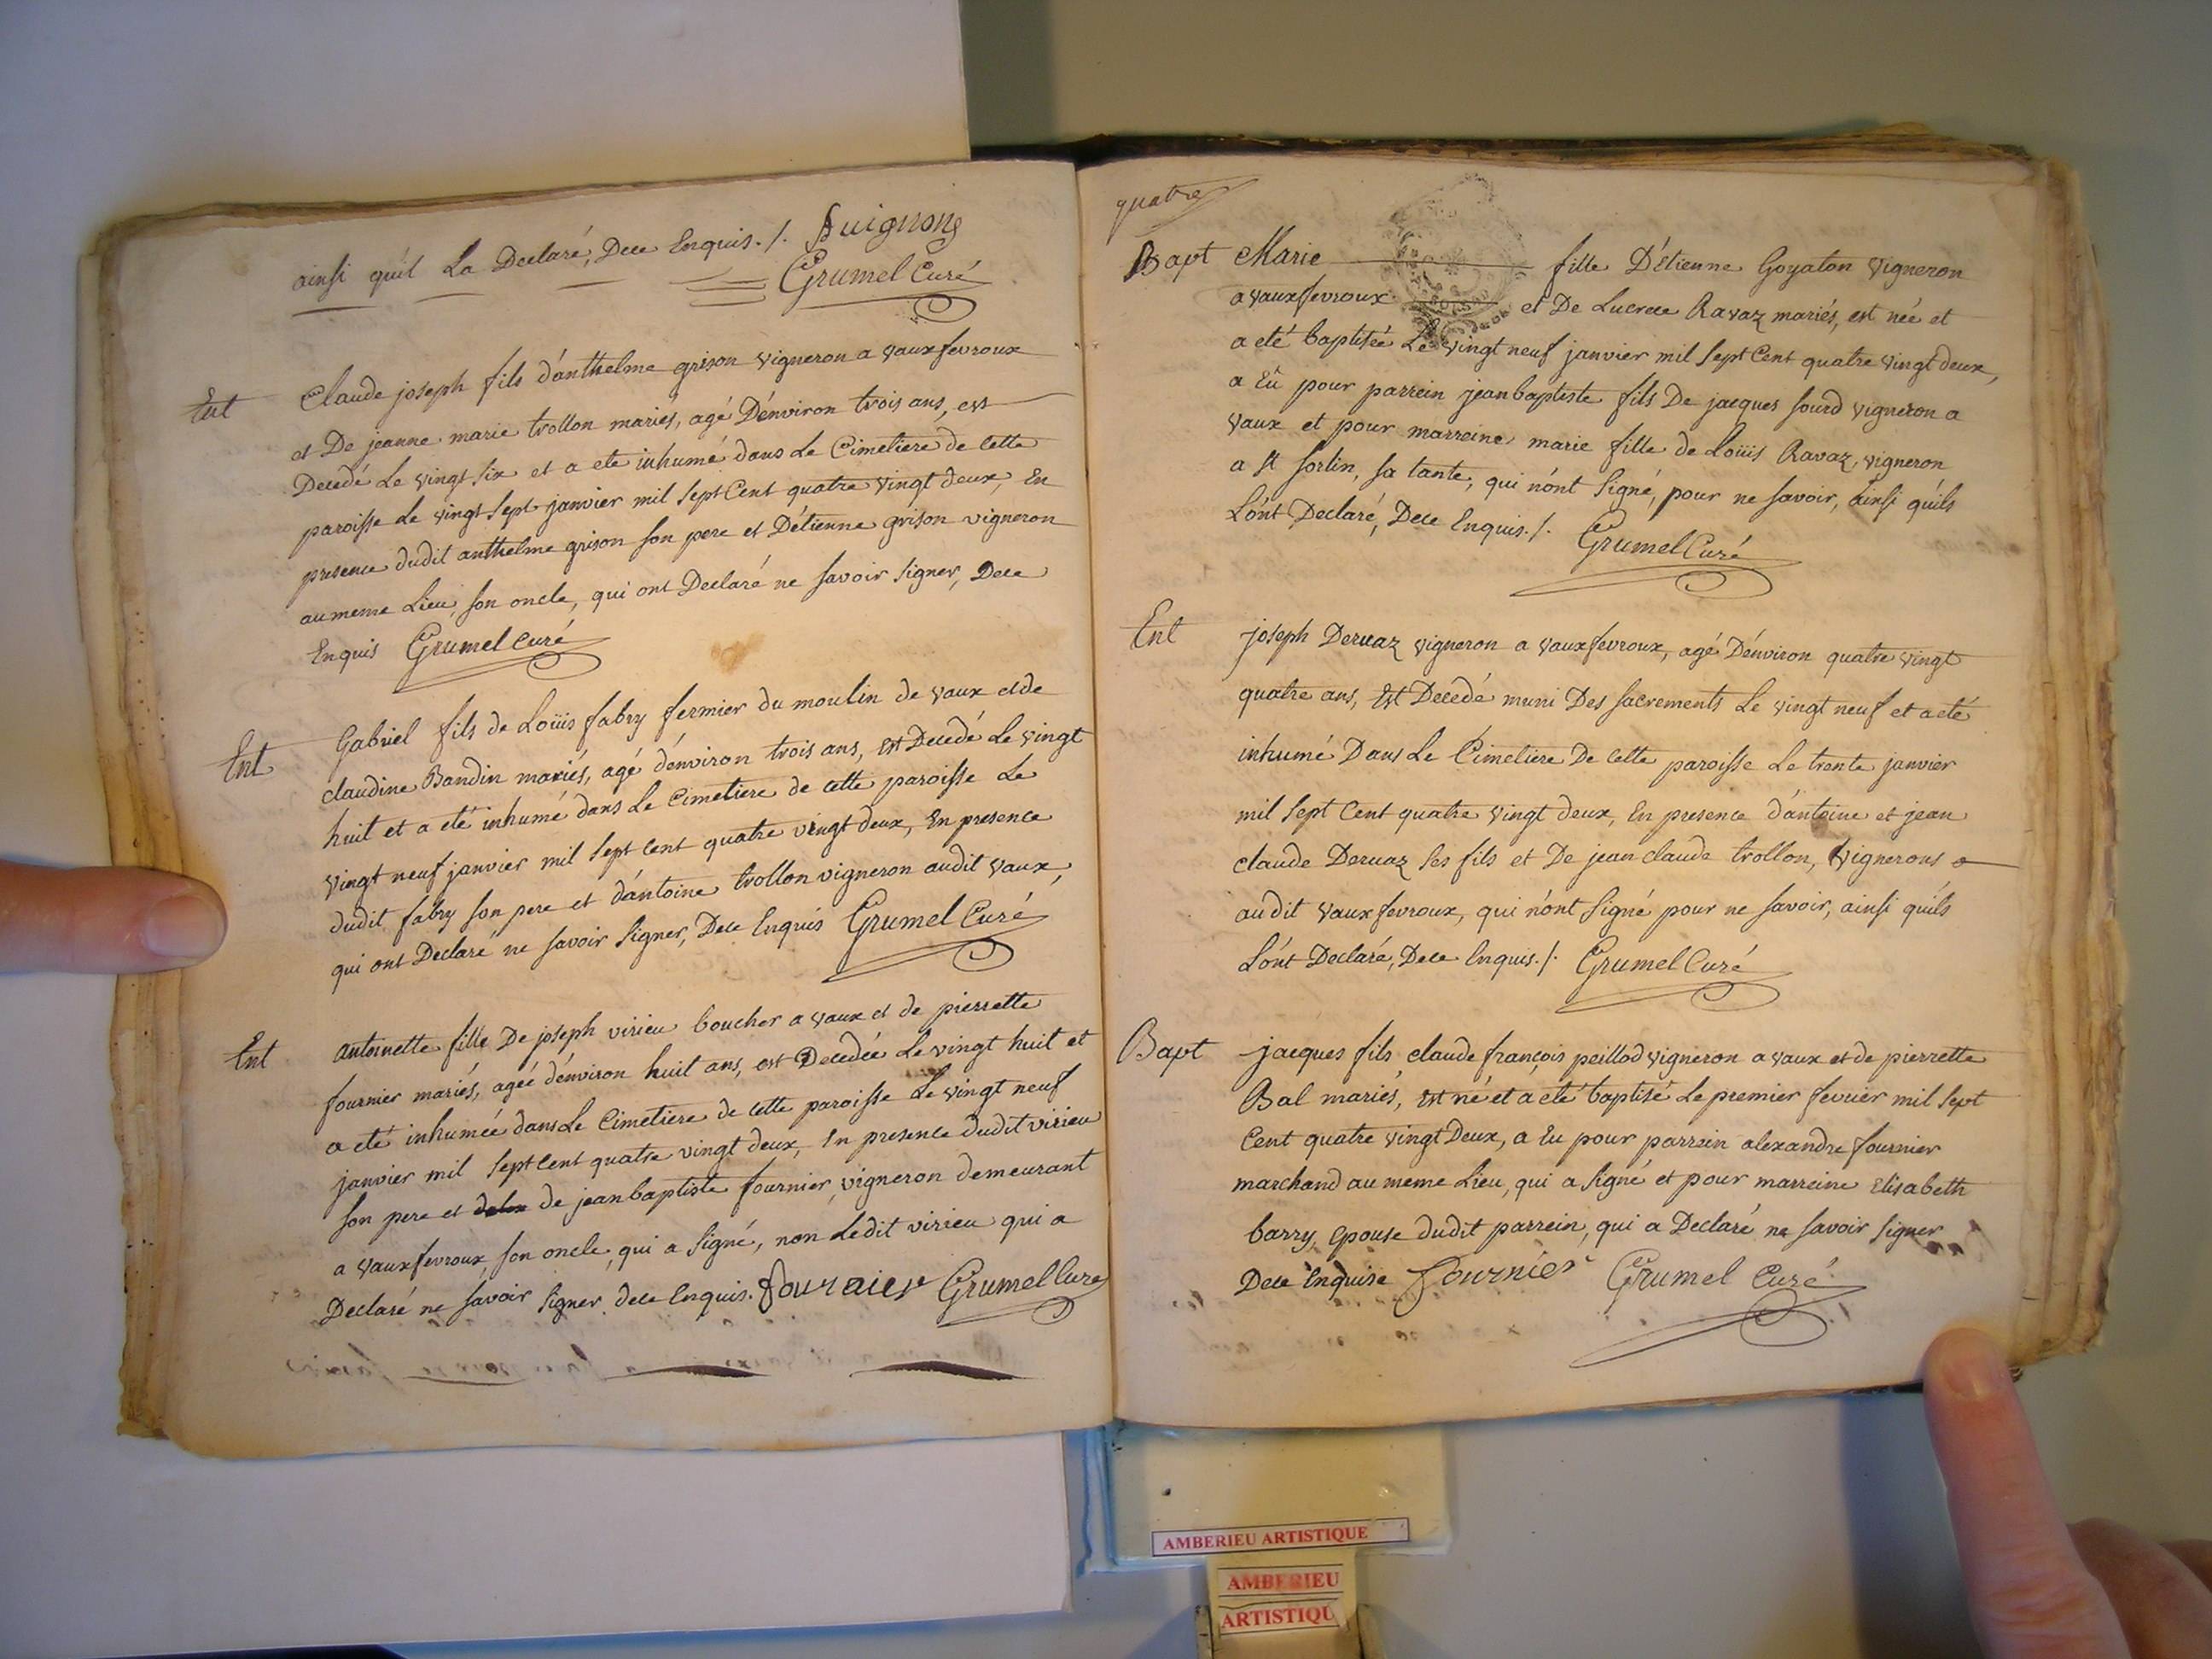 ainsi qu'il La Declaré, Dece Enquis ./. Guignong
Grumel Curé
Ent Claude joseph fils d'anthelme grison vigneron a vauxfevroux
et De jeanne marie trollon mariés, agé D'environ trois ans, est
Decedé Le vingt six et a eté inhumé dans Le Cimetiere de cette
paroisse Le vingt sept janvier mil sept Cent quatre vingt deux, En
presence dudit anthelme grison son pere et D'étienne grison vigneron
au meme Lieu, son oncle, qui ont Declaré ne savoir signer, Dece
Enquis Grumel Curé
Ent Gabriel fils de Loüis fabry fermier du moulin de vaux et de
claudine Bandin mariés, agé d'environ trois ans, Est Decedé Le vingt
huit et a eté inhumé dans Le Cimetiere de cette paroisse Le
vingt neuf janvier mil sept cent quatre vingt deux, En presence
dudit fabry son pere et d'antoine trollon vigneron audit vaux,
qui ont Declaré ne savoir signer, Dece Enquis Grumel Curé
Ent antoinette fille De joseph virieu boucher a vaux et de pierrette
fournier mariés, agée d'environ huit ans, est Decedée Le vingt huit et
a eté inhumée dans Le Cimetiere de cette paroisse Le vingt neuf
janvier mil sept cent quatre vingt deux, En presence dudit virieu
son pere et de jean baptiste fournier, vigneron demeurant
a vauxfevroux, son oncle, qui a signé, non Ledit virieu qui a
Declaré ne savoir signer dece Enquis. fournier Grumel Curé
quatre
Bapt Marie fille D'étienne Goyaton vigneron
a vauxfevroux et De Lucrece Ravaz mariés, est née et
a eté baptisée Le vingt neuf janvier mil sept Cent quatre vingt deux,
a Eû pour parrein jean baptiste fils De jacques sourd vigneron a
vaux et pour marreine marie fille de Loüis Ravaz, vigneron
a st sorlin, sa tante, qui n'ont signé, pour ne savoir, ainsi qu'ils
L'ont Declaré, Dece Enquis ./. Grumel Curé
Ent joseph Deruaz vigneron a vauxfevroux, agé D'environ quatre vingt
quatre ans, Est Decedé muni Des sacrements Le vingt neuf et a eté
inhumé Dans Le Cimetiere De cette paroisse Le trente janvier
mil sept Cent quatre vingt deux, En presence d'antoine et jean
claude Deruaz ses fils et De jean claude trollon, vignerons
audit vauxfevroux, qui n'ont signé pour ne savoir, ainsi qu'ils
L'ont Declaré, Dece Enquis ./. Grumel Curé
Bapt jacques fils claude françois peillod vigneron a vaux et de pierrette
Bal mariés, Est né et a eté baptisé Le premier fevrier mil sept
Cent quatre vingt Deux, a Eu pour parrein alexandre fournier
marchand au meme Lieu, qui a signé et pour marreine Elisabeth
barry, Epouse dudit parrein, qui a Declaré ne savoir signer
Dece Enquise Fournier Grumel Curé
AMBERIEU ARTISTIQUE
AMBERIEU
ARTISTIQU